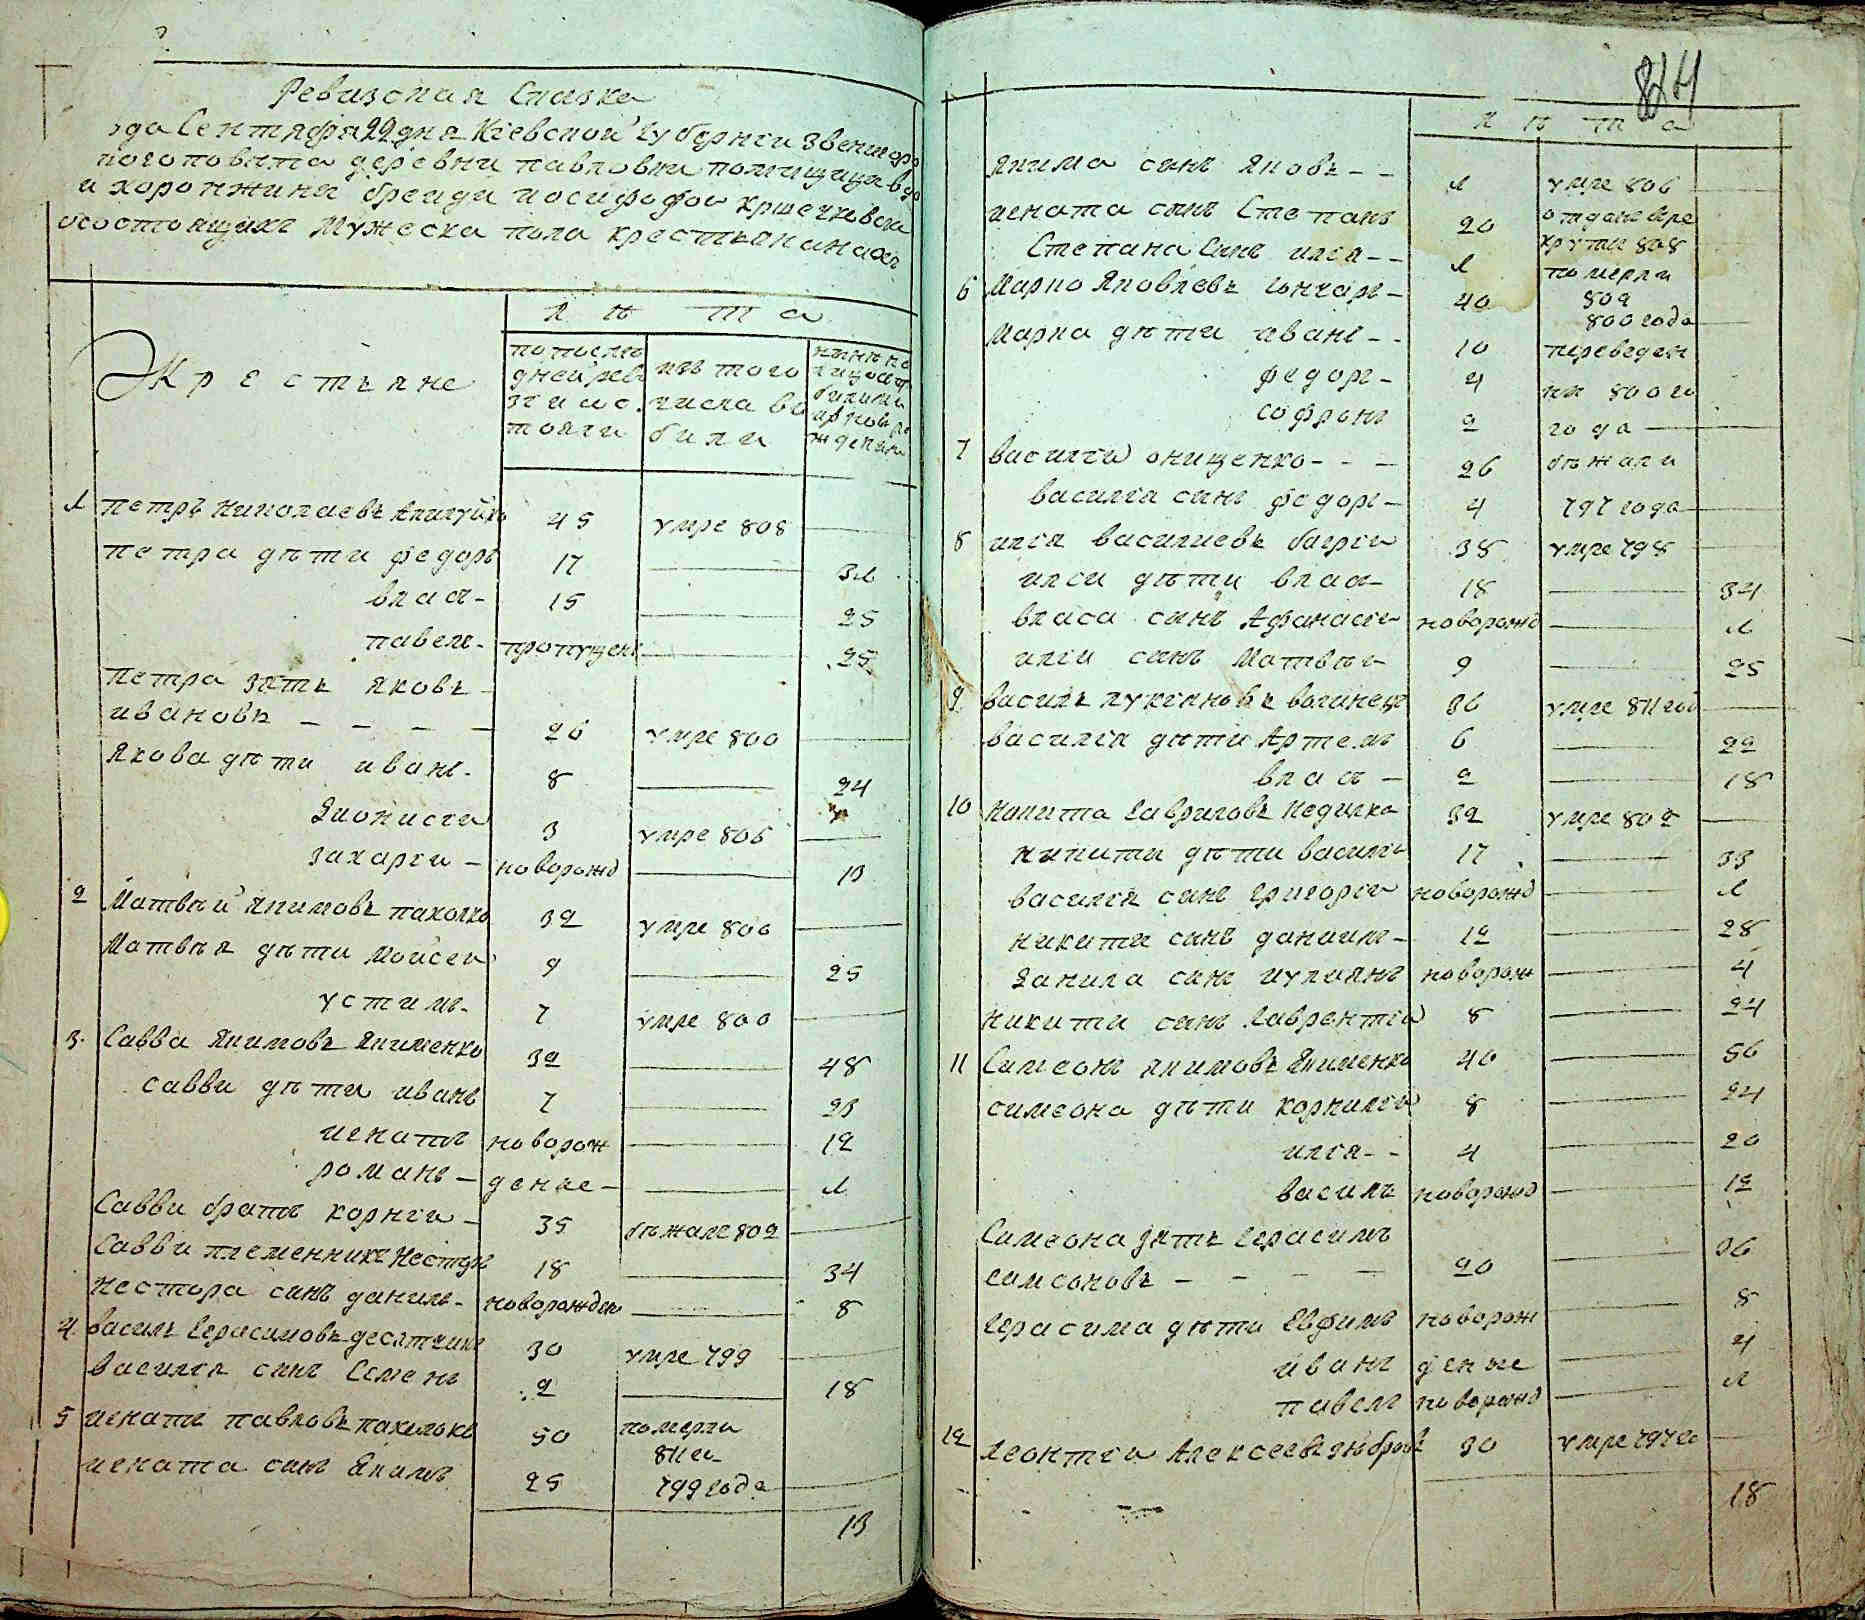 Ревизская Сказка
года Сентября 22 дня Киевской Губернии Звенигородс
кого повета деревни павловки помещици вдо
и хоронжини бригиди иосифофои кршечковски
о состоящихъ Мужеска пола крестьянахъ
Крестьяне
лета
по послед
дней реви
зги сос
тояли
изъ того
числа ви
били
ныне на
лицо
1 петръ николаевъ 45 умре 808
петра дети федоръ 17 31
власъ 15 25
павелъ пропущенъ 25
петра зять яковъ
ивановъ 26 умре 800
якова дети иванъ 8 24
дионисги 3 умре 806
захарги новорожд 13
2 Матвей якимовъ пахолко 32 умре 800
Матвея дети Моисеи 9 25
устимъ 7 умре 800
3 Савва якимовъ якименко 32 48
савви дети иванъ 7 23
игнатъ новорож 12
романъ денне 1
Савви братъ корнги 35 бежалъ 802
Савви племенникъ Несторъ 18 34
нестора синъ данилъ новорожден 8
4 василь Герасимовъ десятникъ 30 умре 799
василгя синъ Семенъ 2 18
5 игнатъ павловъ пахолокъ 50 померли 811 го
игната синъ якимъ 25 799 года
13
814
лета
якима синъ яковъ 1 умре 806
игната синъ Степанъ 20 отданъ в ре
крути 808
Степана Синъ илгя 1 померли
6 Марко яковлевъ гончаръ 40 809
800 года
Марка дети иванъ 10 переведен
федоръ 4 ни 800 го
софронъ 2 года
7 василги онищенко 26 бежали
василгя синъ федоръ 4 797 года
8 илгя василиевъ багрги 38 умре 798
илги дети власъ 18 34
власа синъ Афанасги новорожд 1
илги синъ Матвеи 9 25
9 василь лукгяновъ волинецъ 36 умре 811 год
василгя дети Артемъ 6 22
власъ 2 18
10 никита Гавриловъ Недилко 32 умре 802
никити дети василь 17 33
василгя синъ григорги новорожд 1
никити синъ данаилъ 12 28
данила синъ иулиянъ новорож 4
никити синъ лаврентги 8 24
11 Симеонъ якимовъ якименко 40 56
симеона дети корнилги 8 24
илгя 4 20
василь новорожд 12
Симеона зять Герасимъ
симоновъ 20 36
Герасима дети Евфимъ новорож 8
иванъ денне 4
павелъ новорожд 1
12 леонтги Алексеевъ 30 умре 797 го
18